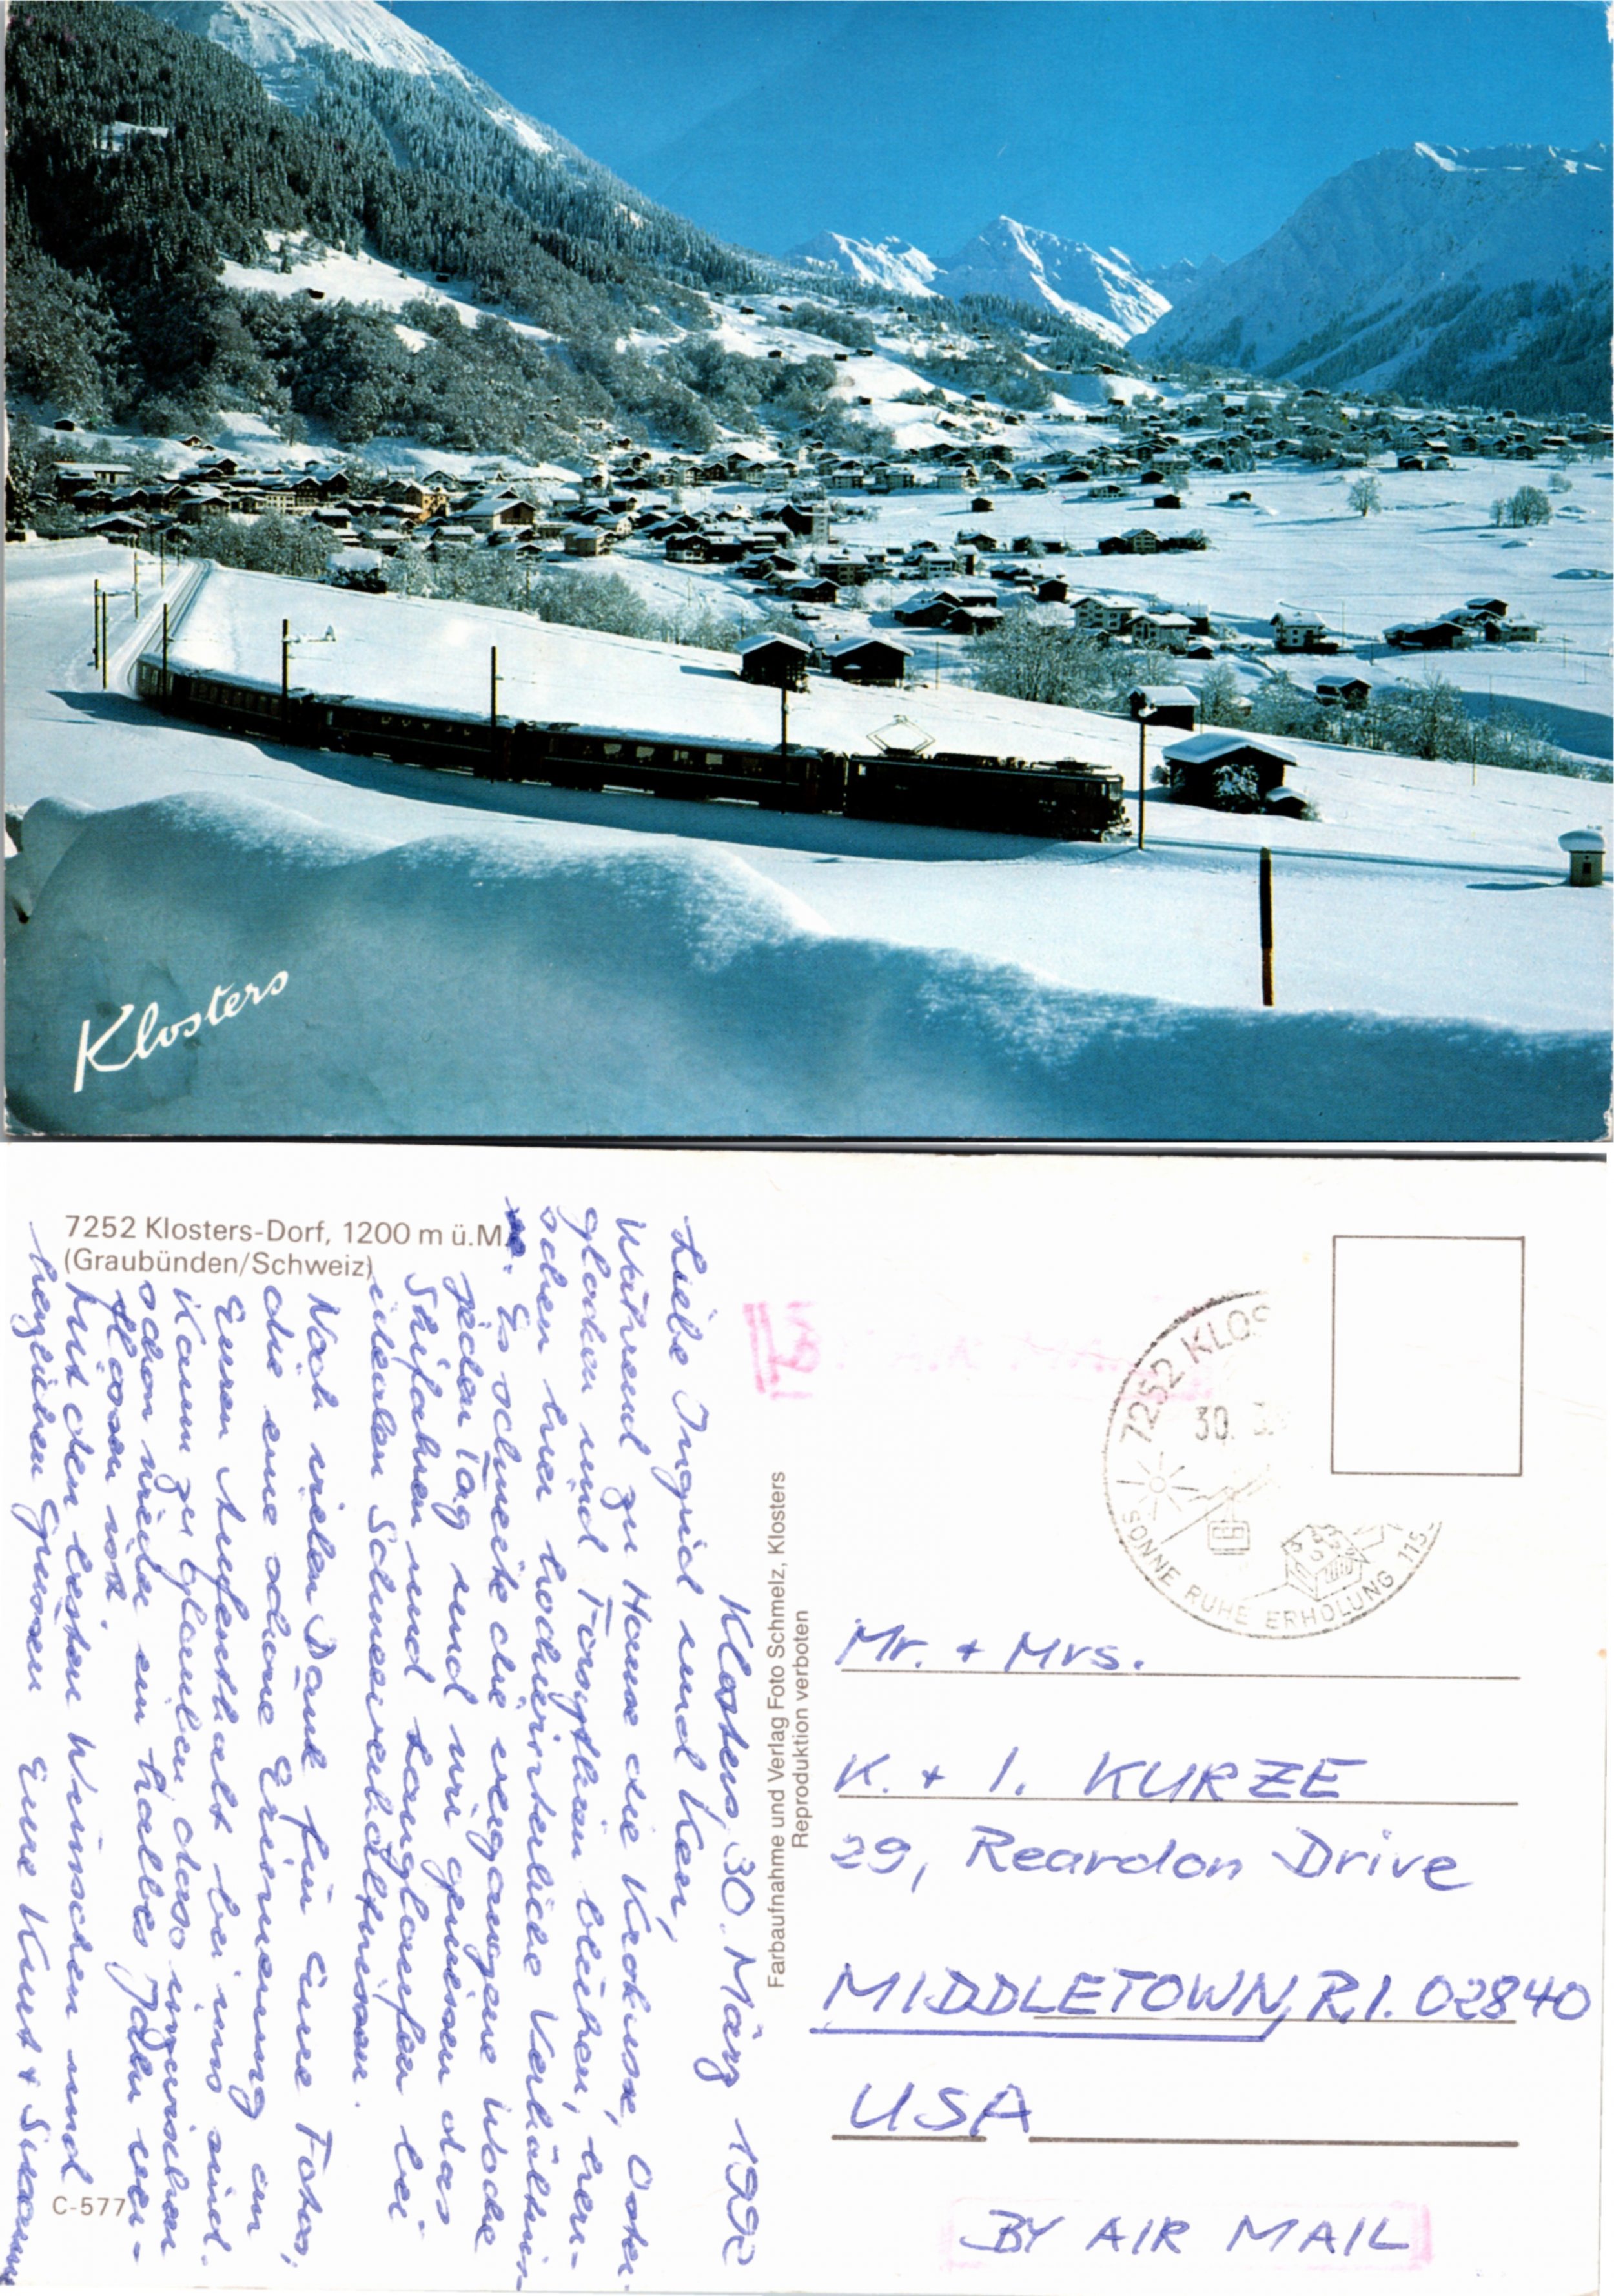 Klosters
7252 Klosters-Dorf, 1200 m ü.M.
(Graubünden/Schweiz)
Klosters, 30. März 1990
Liebe Ingrid und Ken,
Während zu Hause die Krokusse, Oster-
glocken und Forsythien blühen, herr-
schen hier hochwinterliche Verhältnis-
se. Es schneite die vergangene Woche
jeden Tag und wir geniessen das
Skifahren und Langlaufen bei
idealen Schneeverhältnissen.
Noch vielen Dank für Eure Fotos,
die eine schöne Erinnerung an
Euren Aufenthalt bei uns sind.
Kaum zu glauben dass inzwischen
schon wieder ein halbes Jahr ver-
flossen ist.
Mit den besten Wünschen und
herzlichen Grüssen Eure Kurt + Susanne
C-577
Farbaufnahme und Verlag Foto Schmelz, Klosters
Reproduktion verboten
7252 KLOS
30. 3.
SONNE RUHE ERHOLUNG 115
Mr. + Mrs.
K. + I. KURZE
29, Reardon Drive
MIDDLETOWN, R.I. 02840
USA
BY AIR MAIL